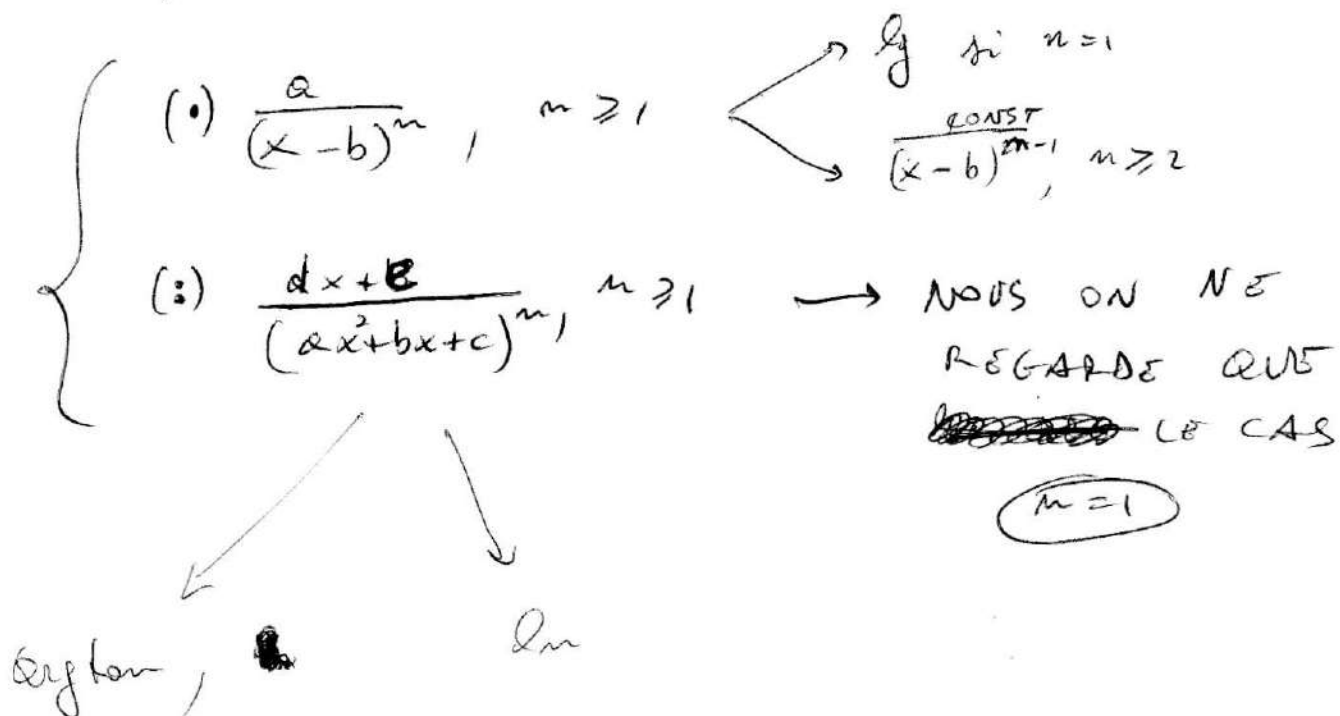 lg si n=1
(•) a/(x-b)^n, n ≥ 1
CONST/(x-b)^{n-1}, n ≥ 2
(:) dx+e/(ax²+bx+c)^n, n ≥ 1 → NOUS ON NE
REGARDE QUE
LE CAS
n=1
argtan, ln